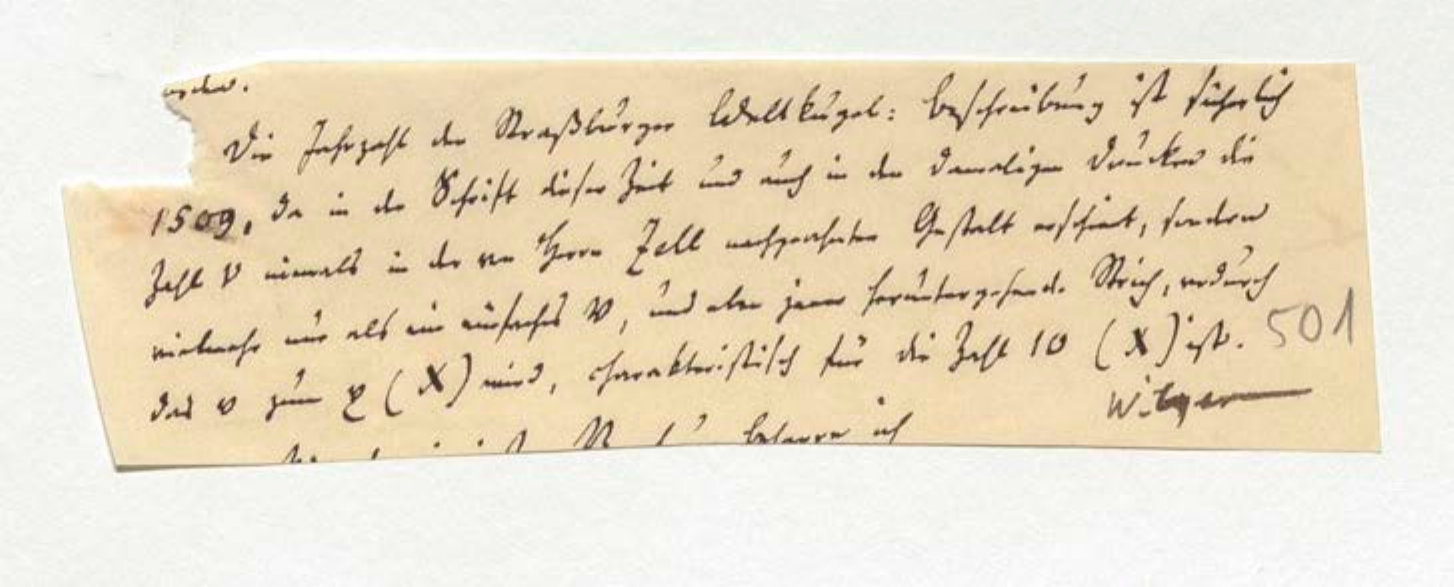 Die Jahrzahl der Straßburger Weltkugel: Beschreibung ist sicherlich
1509, da in der Schrift dieser Zeit und auch in den damaligen Drucken die
Zahl V niemals in der von Herrn Zell nachgeahmten Gestalt erscheint, sondern
vielmehr nur als ein einfaches V, und eben jener heruntergehende Strich, wodurch
das v zum x (X) wird, charakteristisch für die Zahl 10 (X) ist. 501
beharre ich